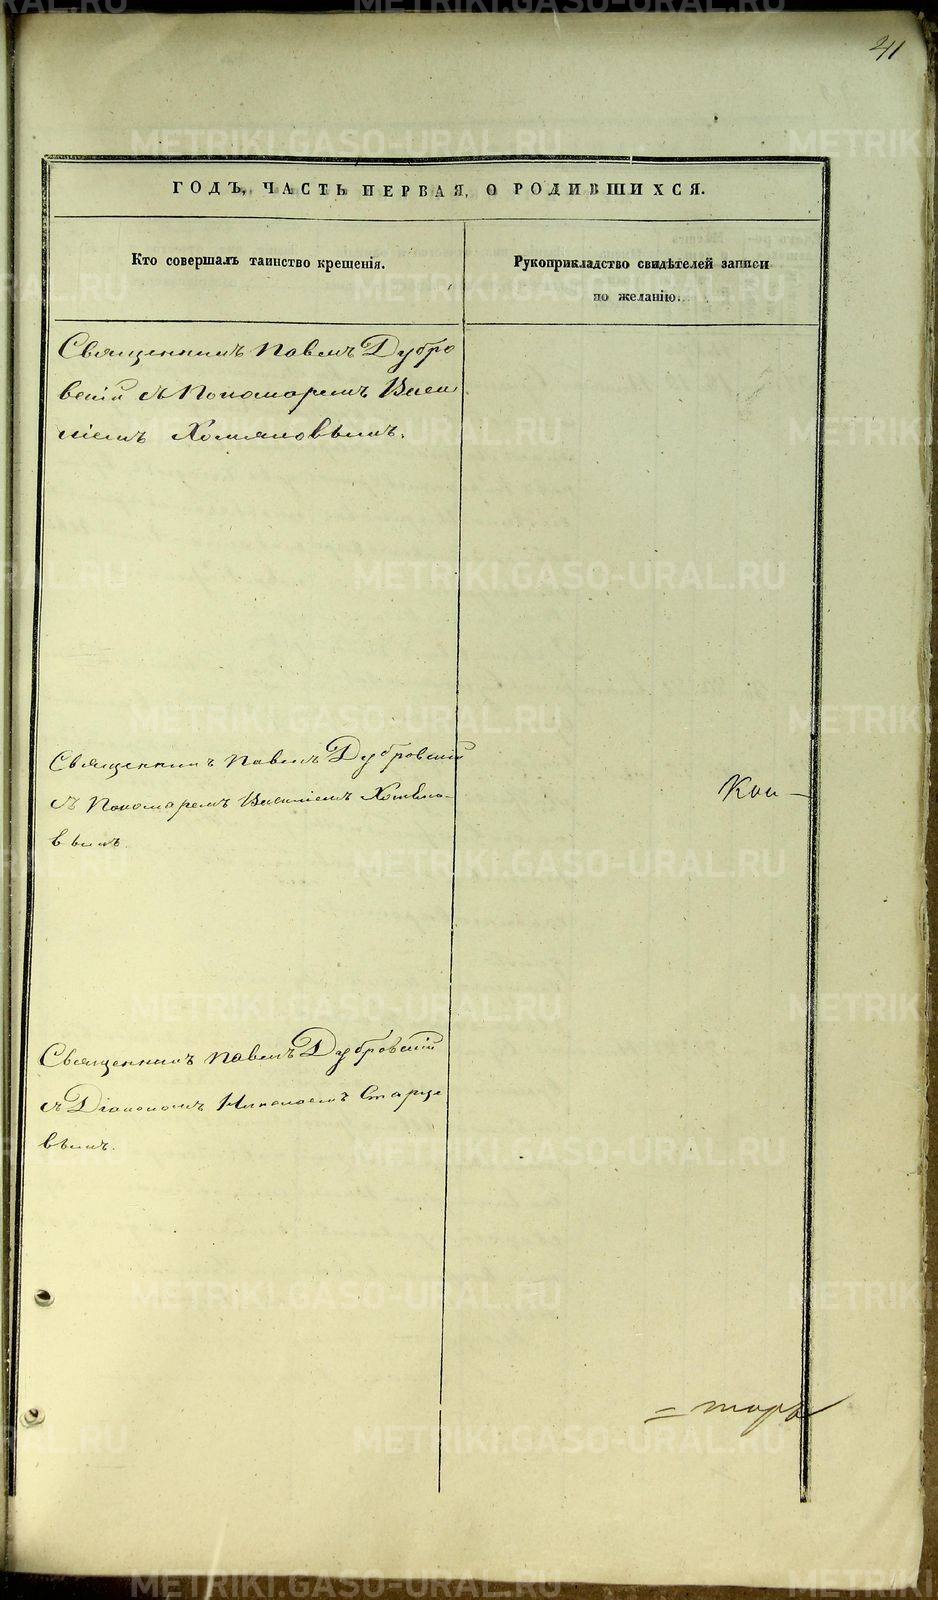 41
ГОДЪ, ЧАСТЬ ПЕРВАЯ, О РОДИВШИХСЯ.
Кто совершалъ таинство крещенія.
Рукоприкладство свидѣтелей записи
по желанію.
Священникъ Павелъ Дубро
вскій съ Пономаремъ Васи
ліемъ Хомяковымъ.
Священникъ Павелъ Дубровскій
съ Пономаремъ Василіемъ Хомяко-
вымъ.
Кон-
Священникъ Павелъ Дубровскій
съ Діакономъ Николаемъ Старце
вымъ.
METRIKI.GASO-URAL.RU